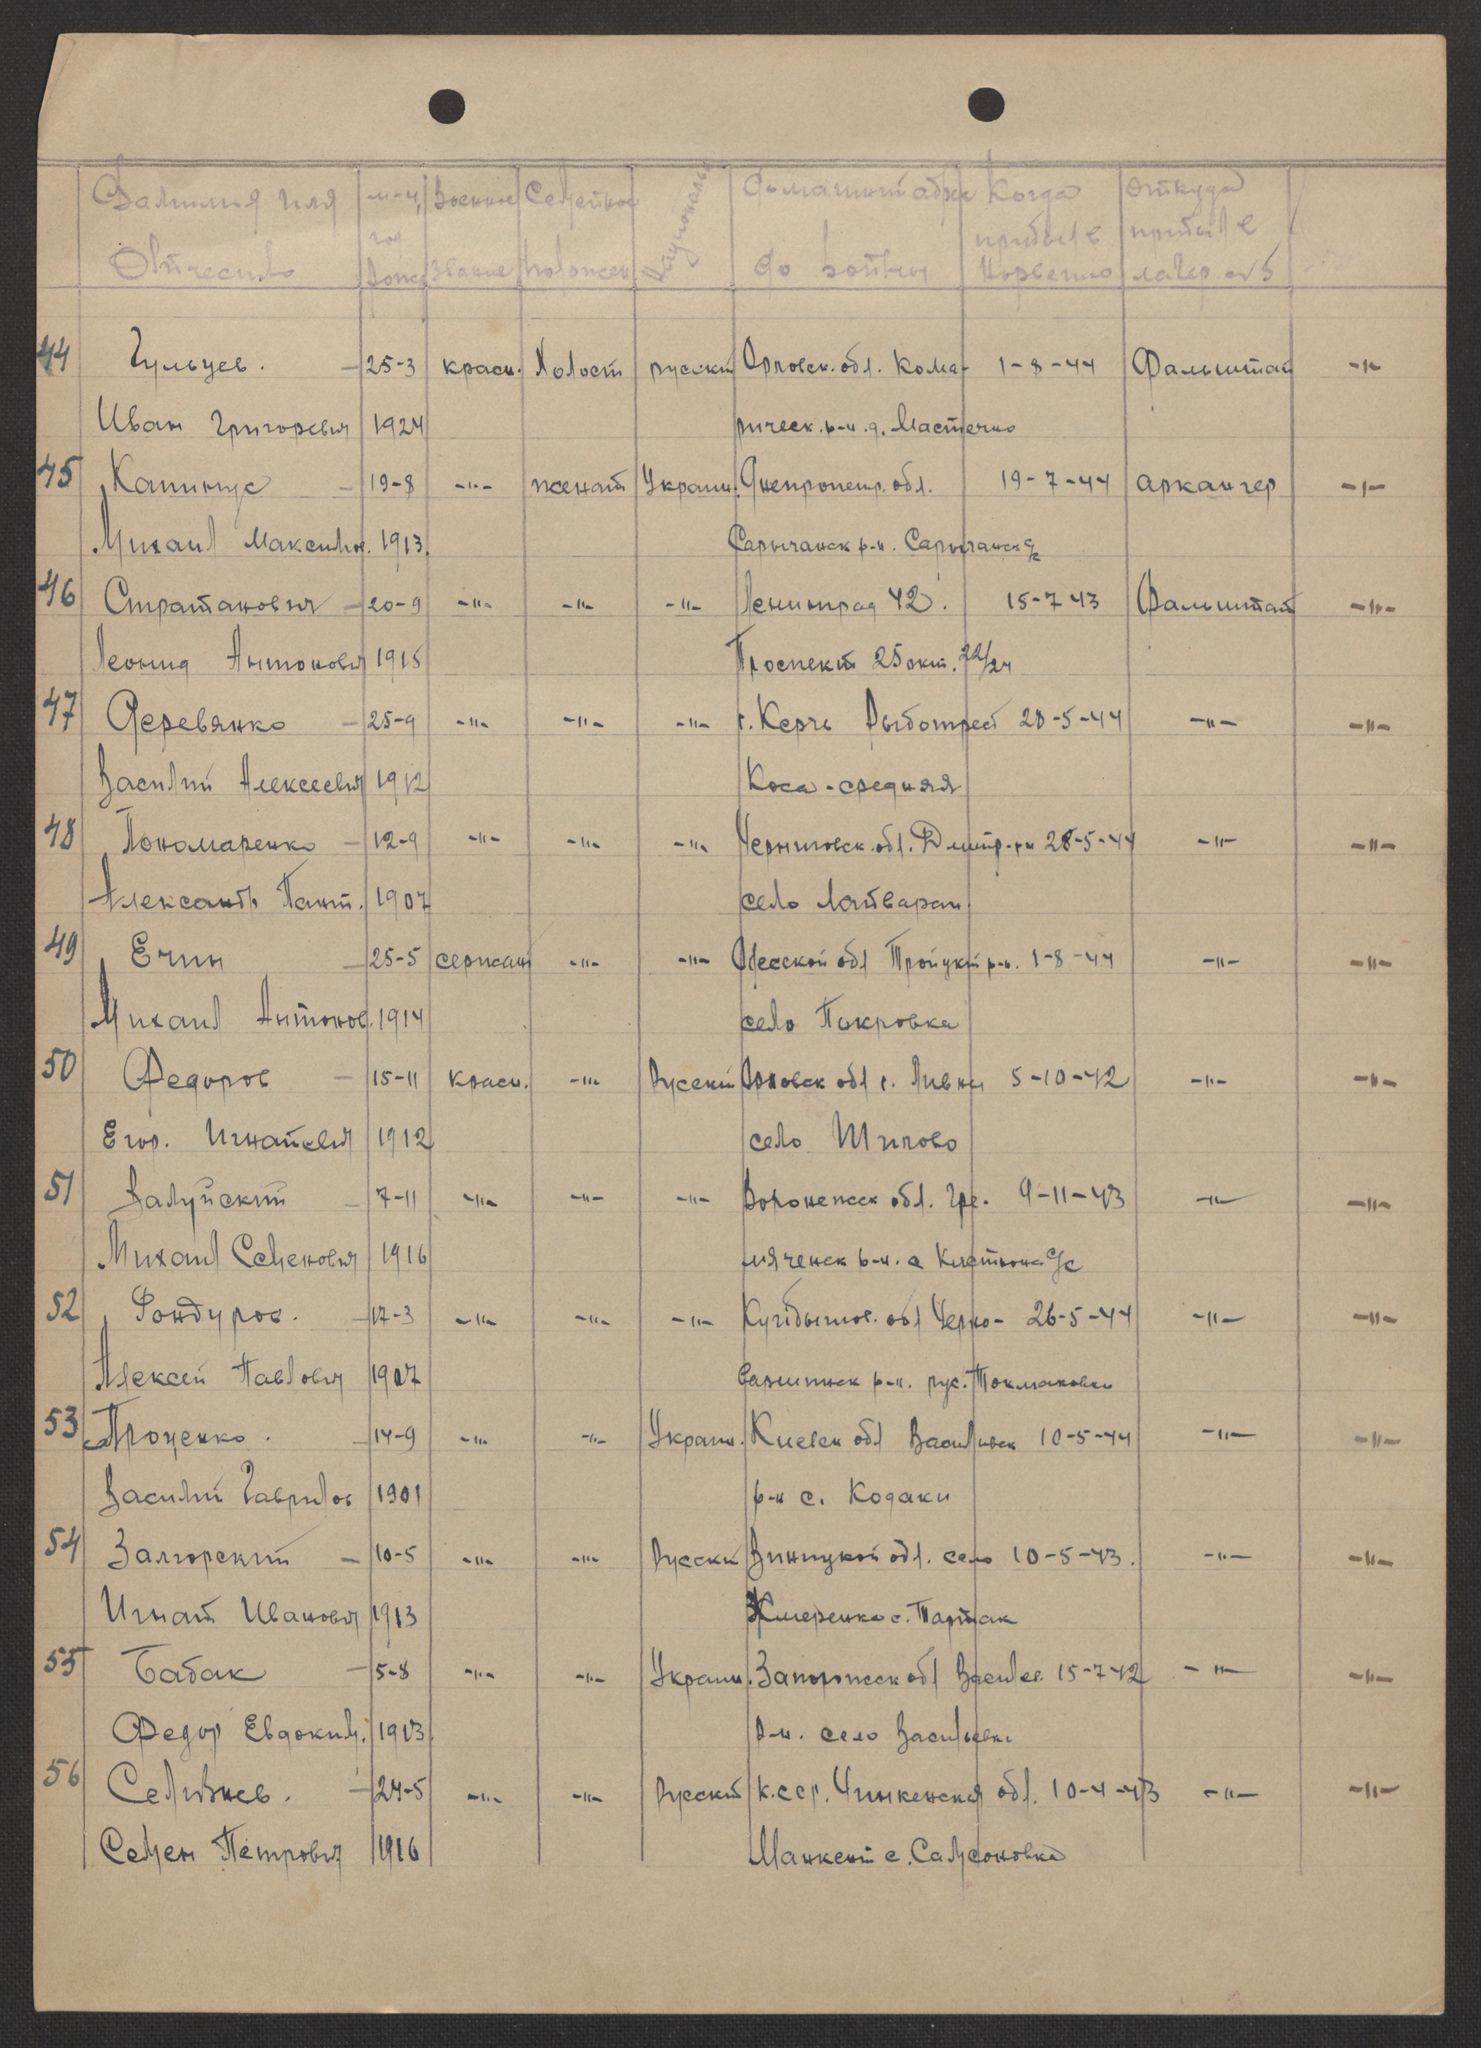 Фамилия имя м-ц, Военное Семейное Национальн Домашний адрес Когда Откуда
Отчество год рожд звание положен до войны прибыл в Норвегию прибыл в лагер №5
44 Гульцев. – 25-3 красн. Холост русский Орловск. обл. Кома- 1-8-44 Фальштат -"-
Иван Григоревич 1924 ричск. р-н. д. Мастечно
45 Капинус – 19-8 -"- женат Украин. Днепропетр. обл. 19-7-44 аркангер -"-
Михаил Максимов. 1913. Сарычанск р-н. Сарычанск с/с
46 Стратанович – 20-9 -"- -"- -"- Ленинград 42. 15-7 43 Фальштат -"-
Леонид Антонович 1915 Проспект 25 окт. 22/24
47 Деревянко – 25-9 -"- -"- -"- г. Керчь Рыботрест 28-5-44 -"- -"-
Василий Алексеевич 1912 Коса-средняя
48 Пономаренко – 12-9 -"- -"- -"- Черниговск. обл. Дмитр. р-н 28-5-44 -"- -"-
Александр Пант. 1907 село
49 Ечин – 25-5 сержант -"- -"- Одесской обл Тройцкий р-н. 1-8-44 -"- -"-
Михаил Антонов. 1914 село Покровка
50 Федоров – 15-11 красн. -"- Русский Орловск обл г. Ливны 5-10-42 -"- -"-
Егор. Игнатевич 1912 село Шипово
51 Валуйский – 7-11 -"- -"- -"- Воронежск обл. Гре- 9-11-43 -"- -"-
Михаил Семенович 1916 мяченск р-н. с/с
52 Фондуров. – 17-3 -"- -"- -"- Куйбышов. обл Черно- 26-5-44 -"- -"-
Алексей Павлович 1907 р-н. рус. Токмаковка
53 Проценко. – 14-9 -"- -"- Украин. Киевск обл Василивск 10-5-44 -"- -"-
Василий Гаврилов 1901 р-н с. Кодаки
54 Залгорский – 10-5 -"- -"- Русский Виницкой обл. село 10-5-43. -"- -"-
Игнат Иванович 1913 Жмеренко с. Партак
55 Бабак – 5-8 -"- -"- Украин. Запорожск обл Василев. 15-7 42 -"- -"-
Федор Евдоким. 1913. р-н. село Васильевка
56 Селивнев. – 24-5 -"- -"- Русский К.сср. Чимкенская обл. 10-4-43 -"- -"-
Семен Петрович 1916 Манкент с. Самсоновка